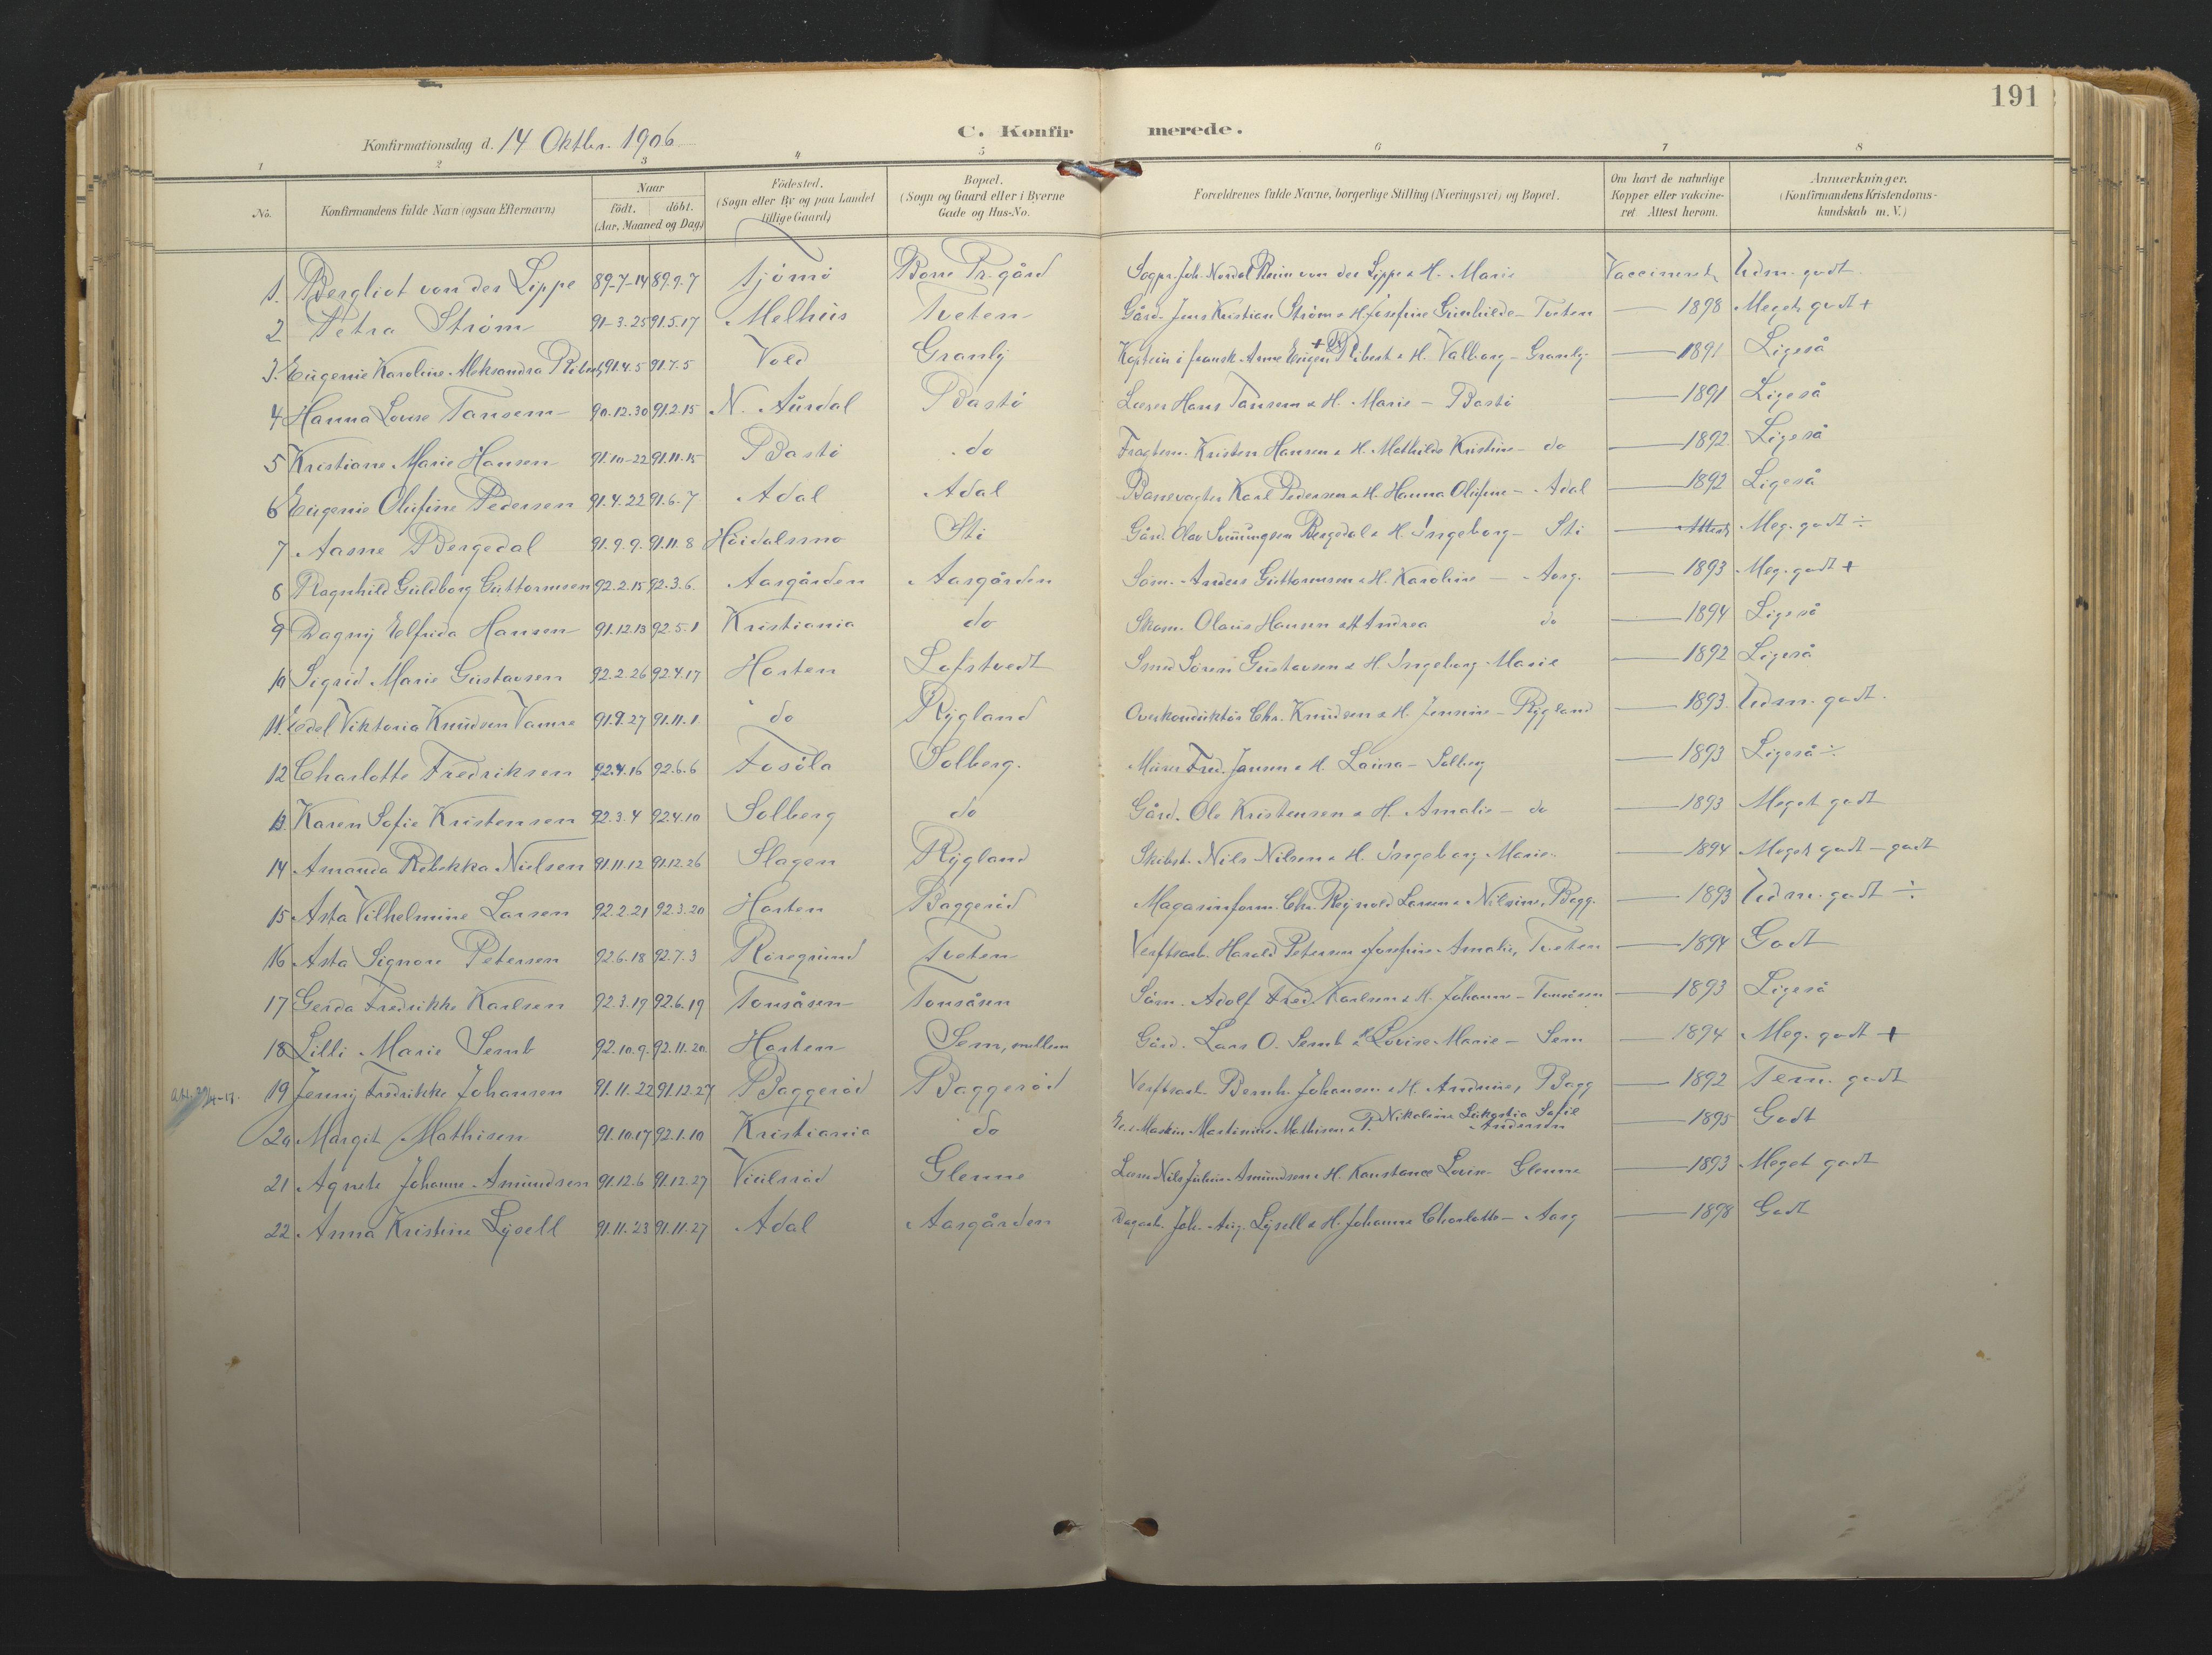 191
Konfirmationsdag d. 14 Oktbr. 1906
C. Konfirmerede.
1 2 3 4 5 6 7 8
No. Konfirmandens fulde Navn (ogsaa Efternavn) Naar födt. döbt. (Aar, Maaned og Dag) Födested. (Sogn eller By og paa Landet tillige Gaard) Bopæl. (Sogn og Gaard eller i Byerne Gade og Hus-No. Forældrenes fulde Navne, borgerlige Stilling (Næringsvei) og Bopæl. Om havt de naturlige Kopper eller vakcineret Attest herom. Anmærkninger. (Konfirmandens Kristendomskundskab m. V.)
1. Bergliot von der Lippe 89-7-14 89.9.7 Tjömö Borre Pr.gård Sogpr. Joh. Nordal Brun von der Lippe & H. Marie Vaccineret Udm. godt
2 Petra Ström 91-3.25 91.5.17 Melhus Tveten Gård. Jens Kristian Ström & H. Josefine Gunhilde - Tveten — 1898 Meget godt +
3. Eugenie Karoline Aleksandra Ribert 91.4.5 91.7.5 Vold Granly Kaptein i fransk Arme Eugen Ribert & H. Valborg - Granly — 1891 Ligeså
4 Hanna Lovise Tansem 90.12.30 91.2.15 N. Aurdal Bastö Læser Hans Tansem & H. Marie - Bastö — 1891 Ligeså
5 Kristiane Marie Hansen 91.10-22 91.11.15 Bastö do Fragtem. Kristen Hansen & H. Mathilde Kristine - do — 1892 Ligeså
6 Eugenie Olufine Pedersen 91.4.22 91.6.7 Adal Adal Banevogter Karl Pedersen & H. Hanna Olufine - Adal — 1892 Ligeså
7 Aasne Bergedal 91.9.9. 91.11.8 Höidalsmo Sti Gård. Olav Bergedal & H. Ingeborg - Sti — Attest Meg. godt ÷
8 Ragnhild Guldborg Guttormsen 92.2.15 92.3.6. Aasgården Aasgården Söm. Anders Guttormsen & H. Karoline — Aasg. — 1893 Meg. godt +
9 Dagny Elfrida Hansen 91.12.13 92.5.1 Kristiania do Skom. Olaus Hansen & H Andrea do — 1894 Ligeså
10 Sigrid Marie Gustavsen 92.2.26 92.4.17 Horten Lofstvedt Smed Sören Gustavsen & H. Ingeborg Marie — 1892 Ligeså
11. Edel Viktoria Knudsen Vamre 91.9.27 91.11.1 do Rygland Overkonduktör Chr. Knudsen & H. Jensine - Rygland — 1893. Udm. godt.
12 Charlotte Fredriksen 92.4.16 92.6.6 Solberg. Murer Fred. Jansen & H. Laura - Solberg — 1893 Ligeså ÷
13. Karen Sofie Kristensen 92.3.4 92.4.10 Solberg do Gård. Ole Kristensen & H. Amalie - do — 1893 Meget godt
14 Amanda Rebekka Nielsen 91.11.12 91.12.26 Slagen Rygland Skibst. Nils Nilsen & H. Ingeborg Marie. — 1894 Meget godt - godt
15 Asta Vilhelmine Larsen 92.2.21 92.3.20 Horten Baggeröd Magasinform. Chr. Reynold Larsen & Nilsine, Bagg. — 1893 Udm. godt ÷
16 Asta Signore Petersen 92.6.18 92.7.3 Röregrund Tveten Verftsarb. Harald Petersen & Josefine Amalie, Tveten — 1894 Godt
17 Gerda Fredrikke Karlsen 92.3.19 92.6.19 Tonsåsen Tonsåsen Söm. Adolf Fred. Karlsen & H. Johanne - Tonsåsen — 1893 Ligeså
18 Lilli Marie Semb 92.10.9. 92.11.20. Horten Sem, mellem Gård. Lars O. Semb & H Lovise Marie - Sem — 1894 Meg. godt +
19 Jenny Fredrikke Johansen 91.11.22 91.12.27 Baggeröd Baggeröd Verftsarb. Bernh. Johansen & H. Andrine, Bagg — 1892 Tem. godt
20 Margit Mathisen 91.10.17 92.1.10 Kristiania do Maskin Martinius Mathisen & P. Nikoline Sofie Andersen — 1895 Godt
21 Agnete Johanne Amundsen 91.12.6 91.12.27 Viulsröd Glenne Nils Julius Amundsen & H. Konstance Lovise Glenne — 1893 Meget godt
22 Anna Kristine Lysell 91.11.23 91.11.27 Adal Aasgården Dagarb. Joh. Aug. Lysell & H. Johanne Charlotte - Aasg — 1898 Godt